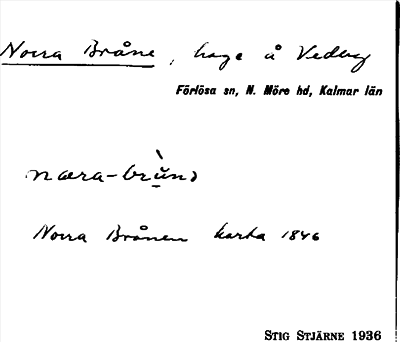 Norra Bråne, hage å Vedby
Förlösa sn, N. Möre hd, Kalmar län
Norra Brånen karta 1846
STIG STJÄRNE 1936